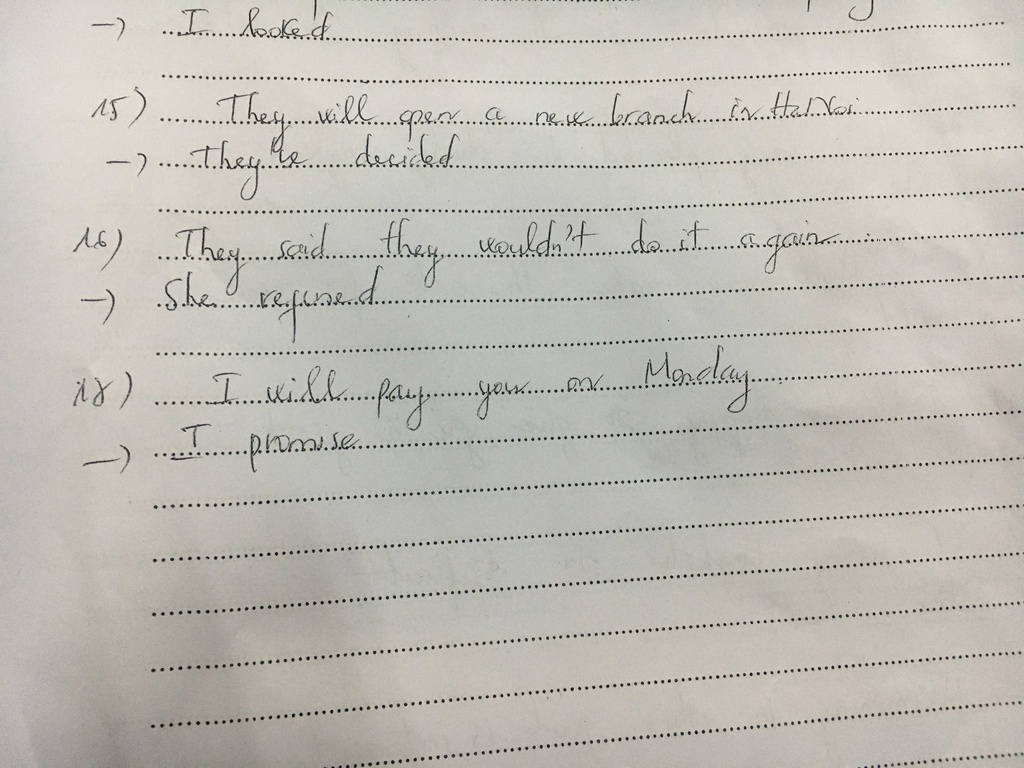 -) I looked
15) They will open a new branch in Ha Noi
-) They've decided
16) They said they wouldn't do it again
-) She refused
18) I will pay you on Monday
-) I promise